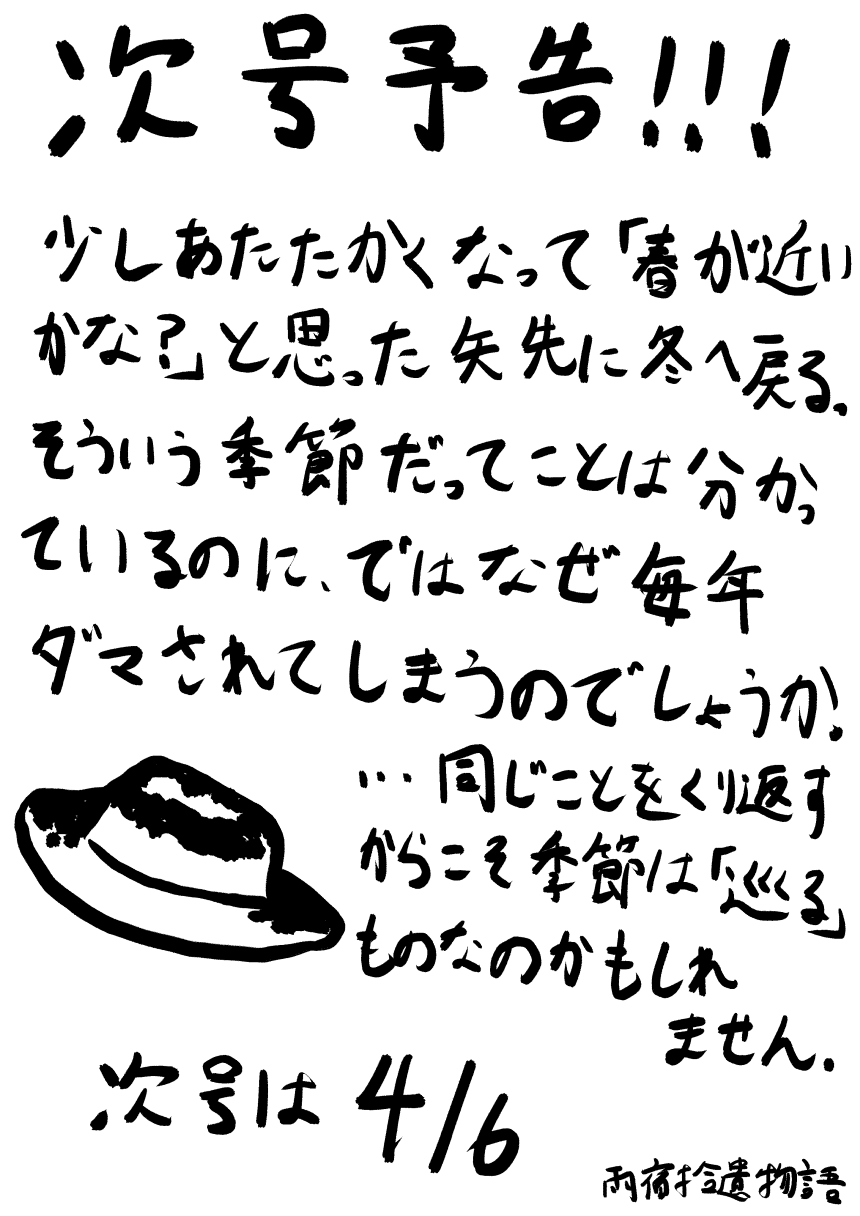 次号予告!!!
少しあたたかくなって「春が近い
かな?」と思った矢先に冬へ戻る。
そういう季節だってことは分かっ
ているのに、ではなぜ毎年
ダマされてしまうのでしょうか。
…同じことをくり返す
からこそ季節は「巡る」
ものなのかもしれ
ません。
次号は4/6
雨宿拾遺物語